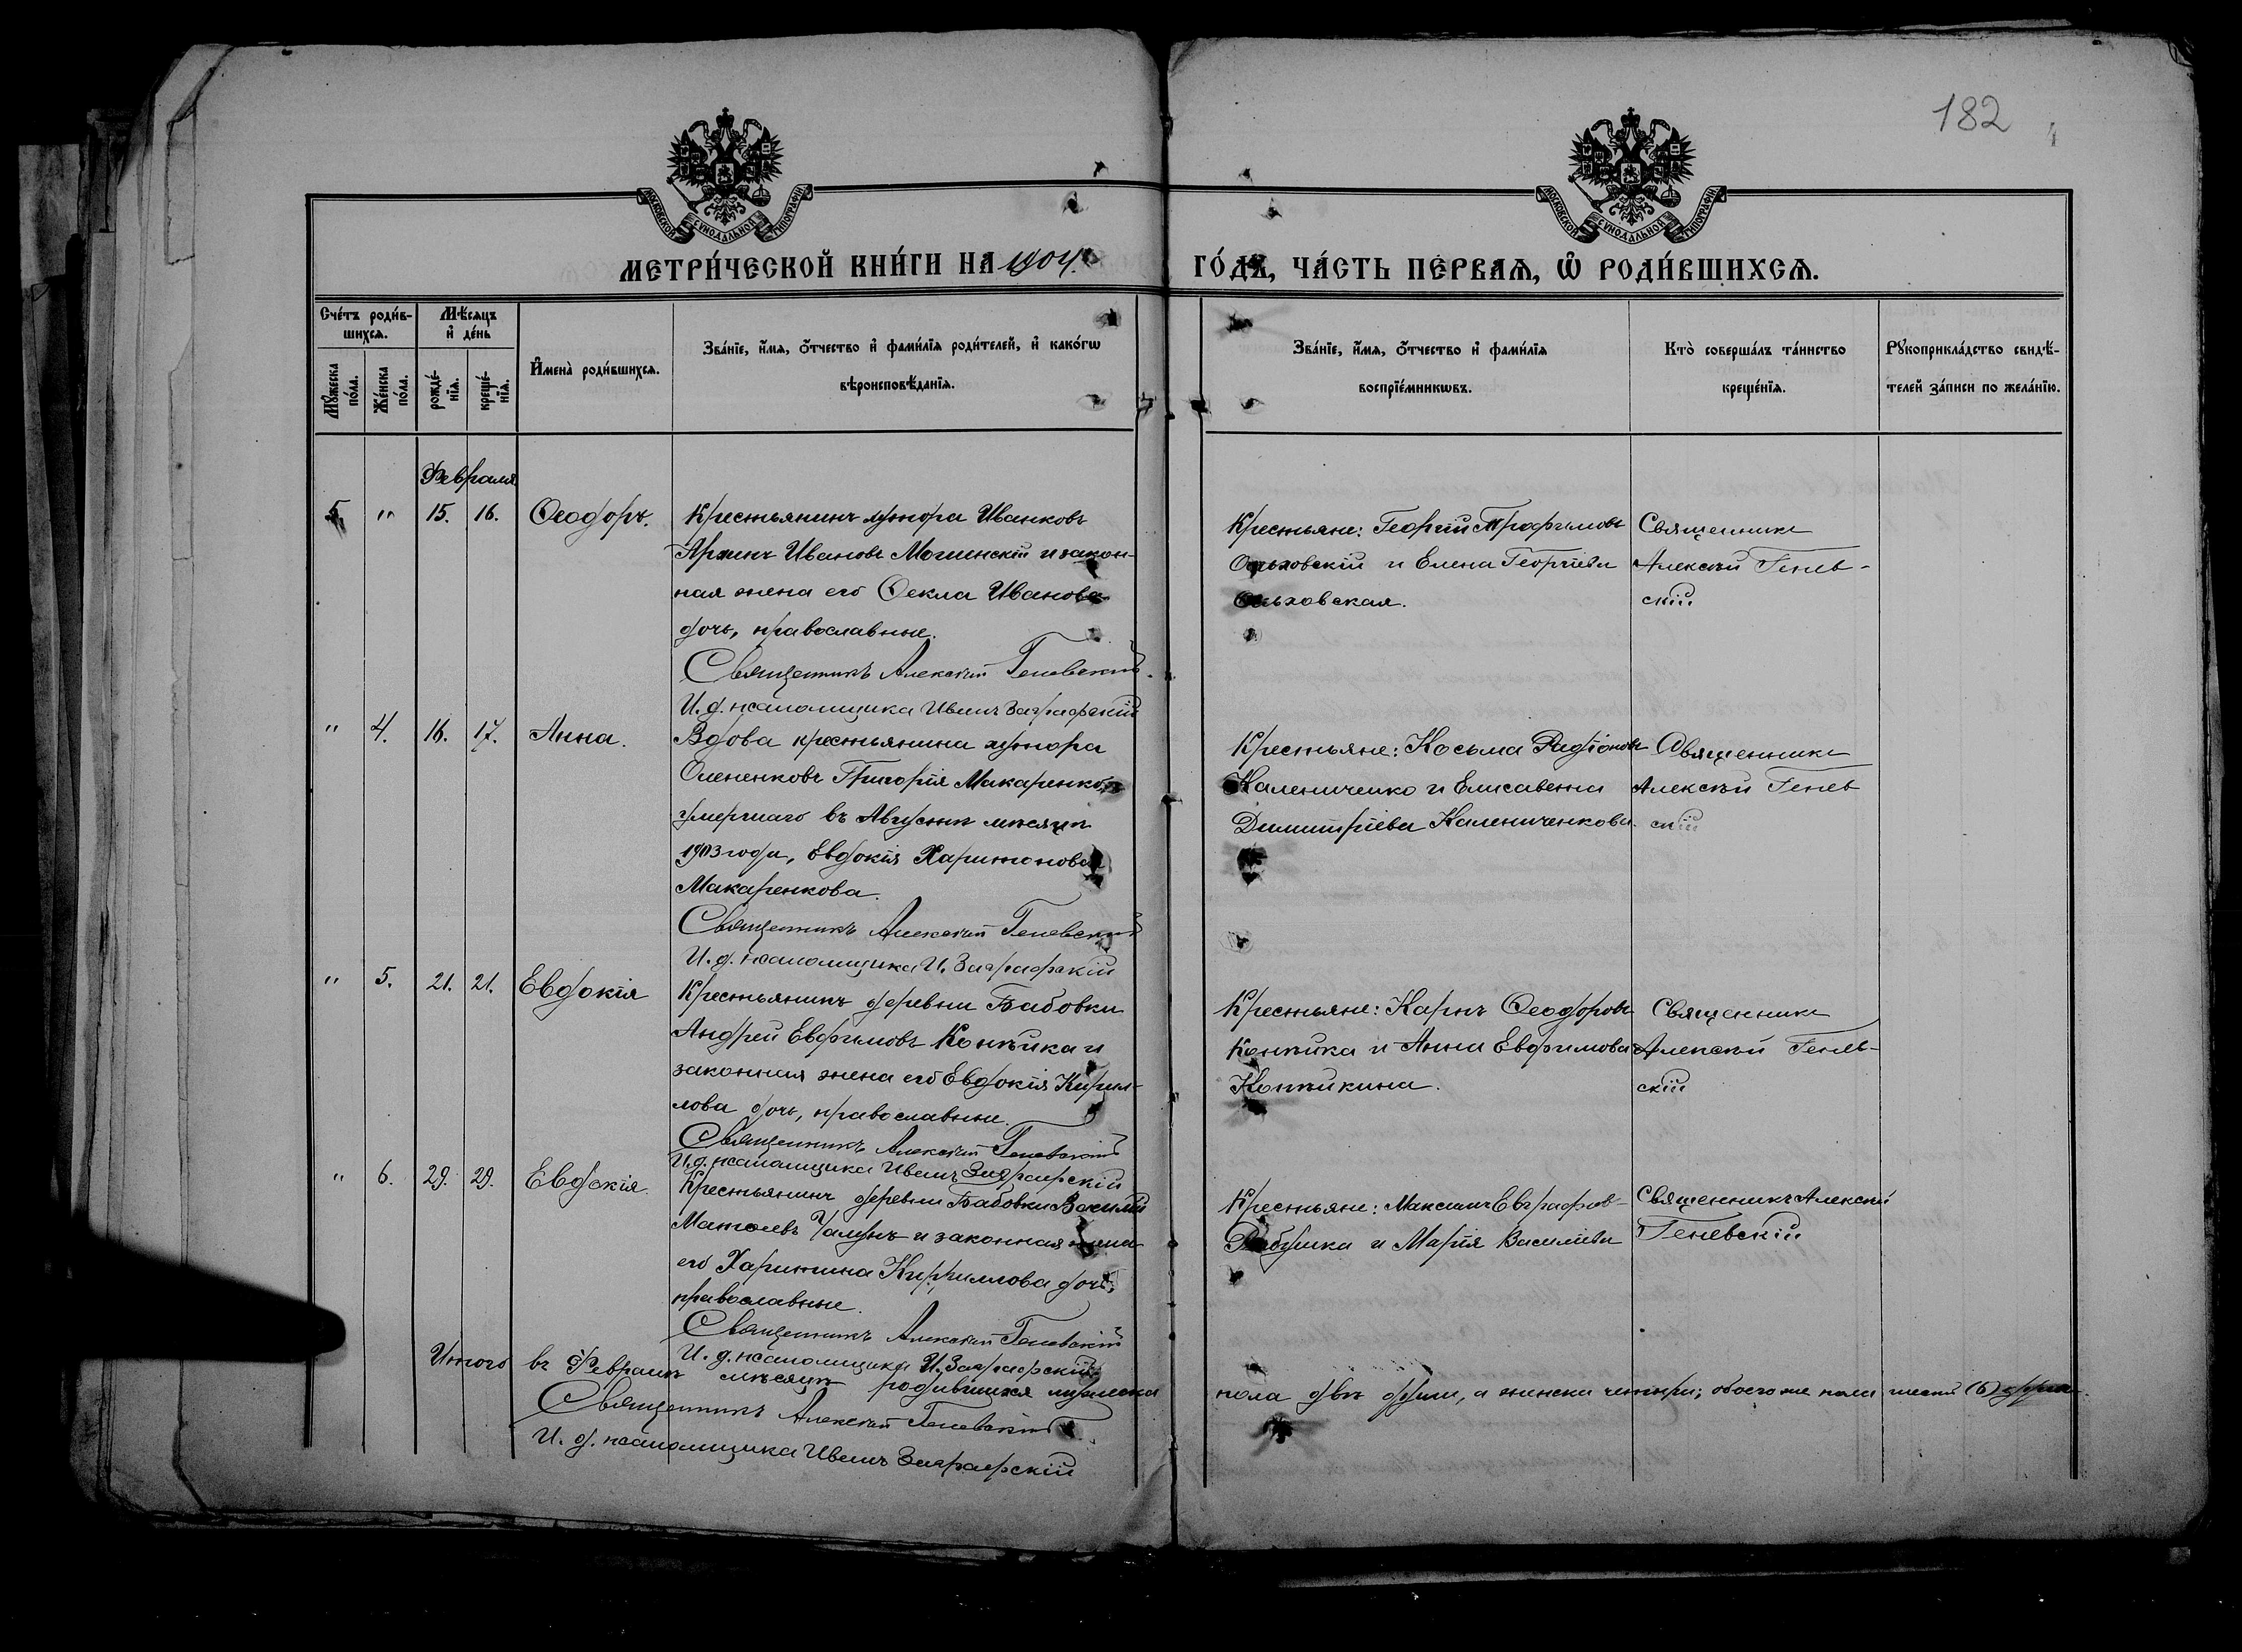 182
МОСКОВСКОЙ СѴНОДАЛЬНОЙ ТИПОГРАФІИ
МОСКОВСКОЙ СѴНОДАЛЬНОЙ ТИПОГРАФІИ
МЕТРИ́ЧЕСКОЙ КНИ́ГИ НА 1904.
ГО́ДЪ, ЧА́СТЬ ПЕ́РВАѦ, Ѡ҆ РОДИ́ВШИХСѦ.
Сче́тъ роди́в-
шихсѧ.
Мꙋ́жеска по́ла.
Же́нска по́ла.
Мѣ́сѧцъ
и҆ де́нь
рожде́-
нїѧ.
креще́-
нїѧ.
И҆мена̀ роди́вшихсѧ.
Зва́нїе, и҆́мѧ, ѻ҆́тчество и҆ фами́лїѧ роди́телей, и҆ како́гѡ
вѣроисповѣ́данїѧ.
Зва́нїе, и҆́мѧ, ѻ҆́тчество и҆ фами́лїѧ
воспрїе́мникѡвъ.
Кто̀ соверша́лъ та́инство
креще́нїѧ.
Рꙋкоприкла́дство свидѣ́-
телей за́писи по жела́нїю.
Февраля
5. " 15. 16. Ѳеодоръ.
Крестьянинъ хутора Иванковъ
Иванов Могинскій и закон-
ная жена его Ѳекла Иванова
дочь, православные.
Священникъ Алексѣй Геневскій.
И. д. псаломщика Иванъ Заграфскій
Крестьяне: Георгій Трофимовъ
Ольховскій и Елена Георгіева
Ольховская.
Священникъ
Алексѣй Генев-
скій
" 4. 16. 17. Анна.
Вдова крестьянина хутора
Олененковъ Григорія Макаренкова
умершаго въ Августѣ мѣсяцѣ
1903 года, Евдокія Харитонова
Макаренкова.
Священникъ Алексѣй Геневскій
И. д. псаломщика И. Заграфскій
Крестьяне: Косьма Родіоновъ
Калениченко и Елисавета
Димитріева Калениченкова.
Священникъ
Алексѣй Генев
скій
" 5. 21. 21. Евдокія
Крестьянинъ деревни Бабовки
Андрей Евфимовъ Копѣйка и
законная жена его Евдокія Кирил-
лова дочь, православные.
Священникъ Алексѣй Геневскій
И. д. псаломщика Иванъ Заграфскій
Крестьяне: Карпъ Ѳеодоровъ
Копѣйка и Анна Евфимова
Копѣйкина.
Священникъ
Алексѣй Генев-
скій
" 6. 29. 29. Евдокія.
Крестьянинъ деревни Бабовки Василій
Матвѣевъ Галунъ и законная жена
его Харитина Кириллова дочь,
православные.
Священникъ Алексѣй Геневскій
И. д. псаломщика И. Заграфскій
Крестьяне: Максимъ Евграфов-
Рябушка и Марія Василіева
Священникъ Алексѣй
Геневскій
Итого въ Февралѣ мѣсяцѣ родившихся мужеска
пола двѣ души, а женска четыри; обоего же пола шесть (6) душъ
Священникъ Алексѣй Геневскій
И. д. псаломщика Иванъ Заграфскій